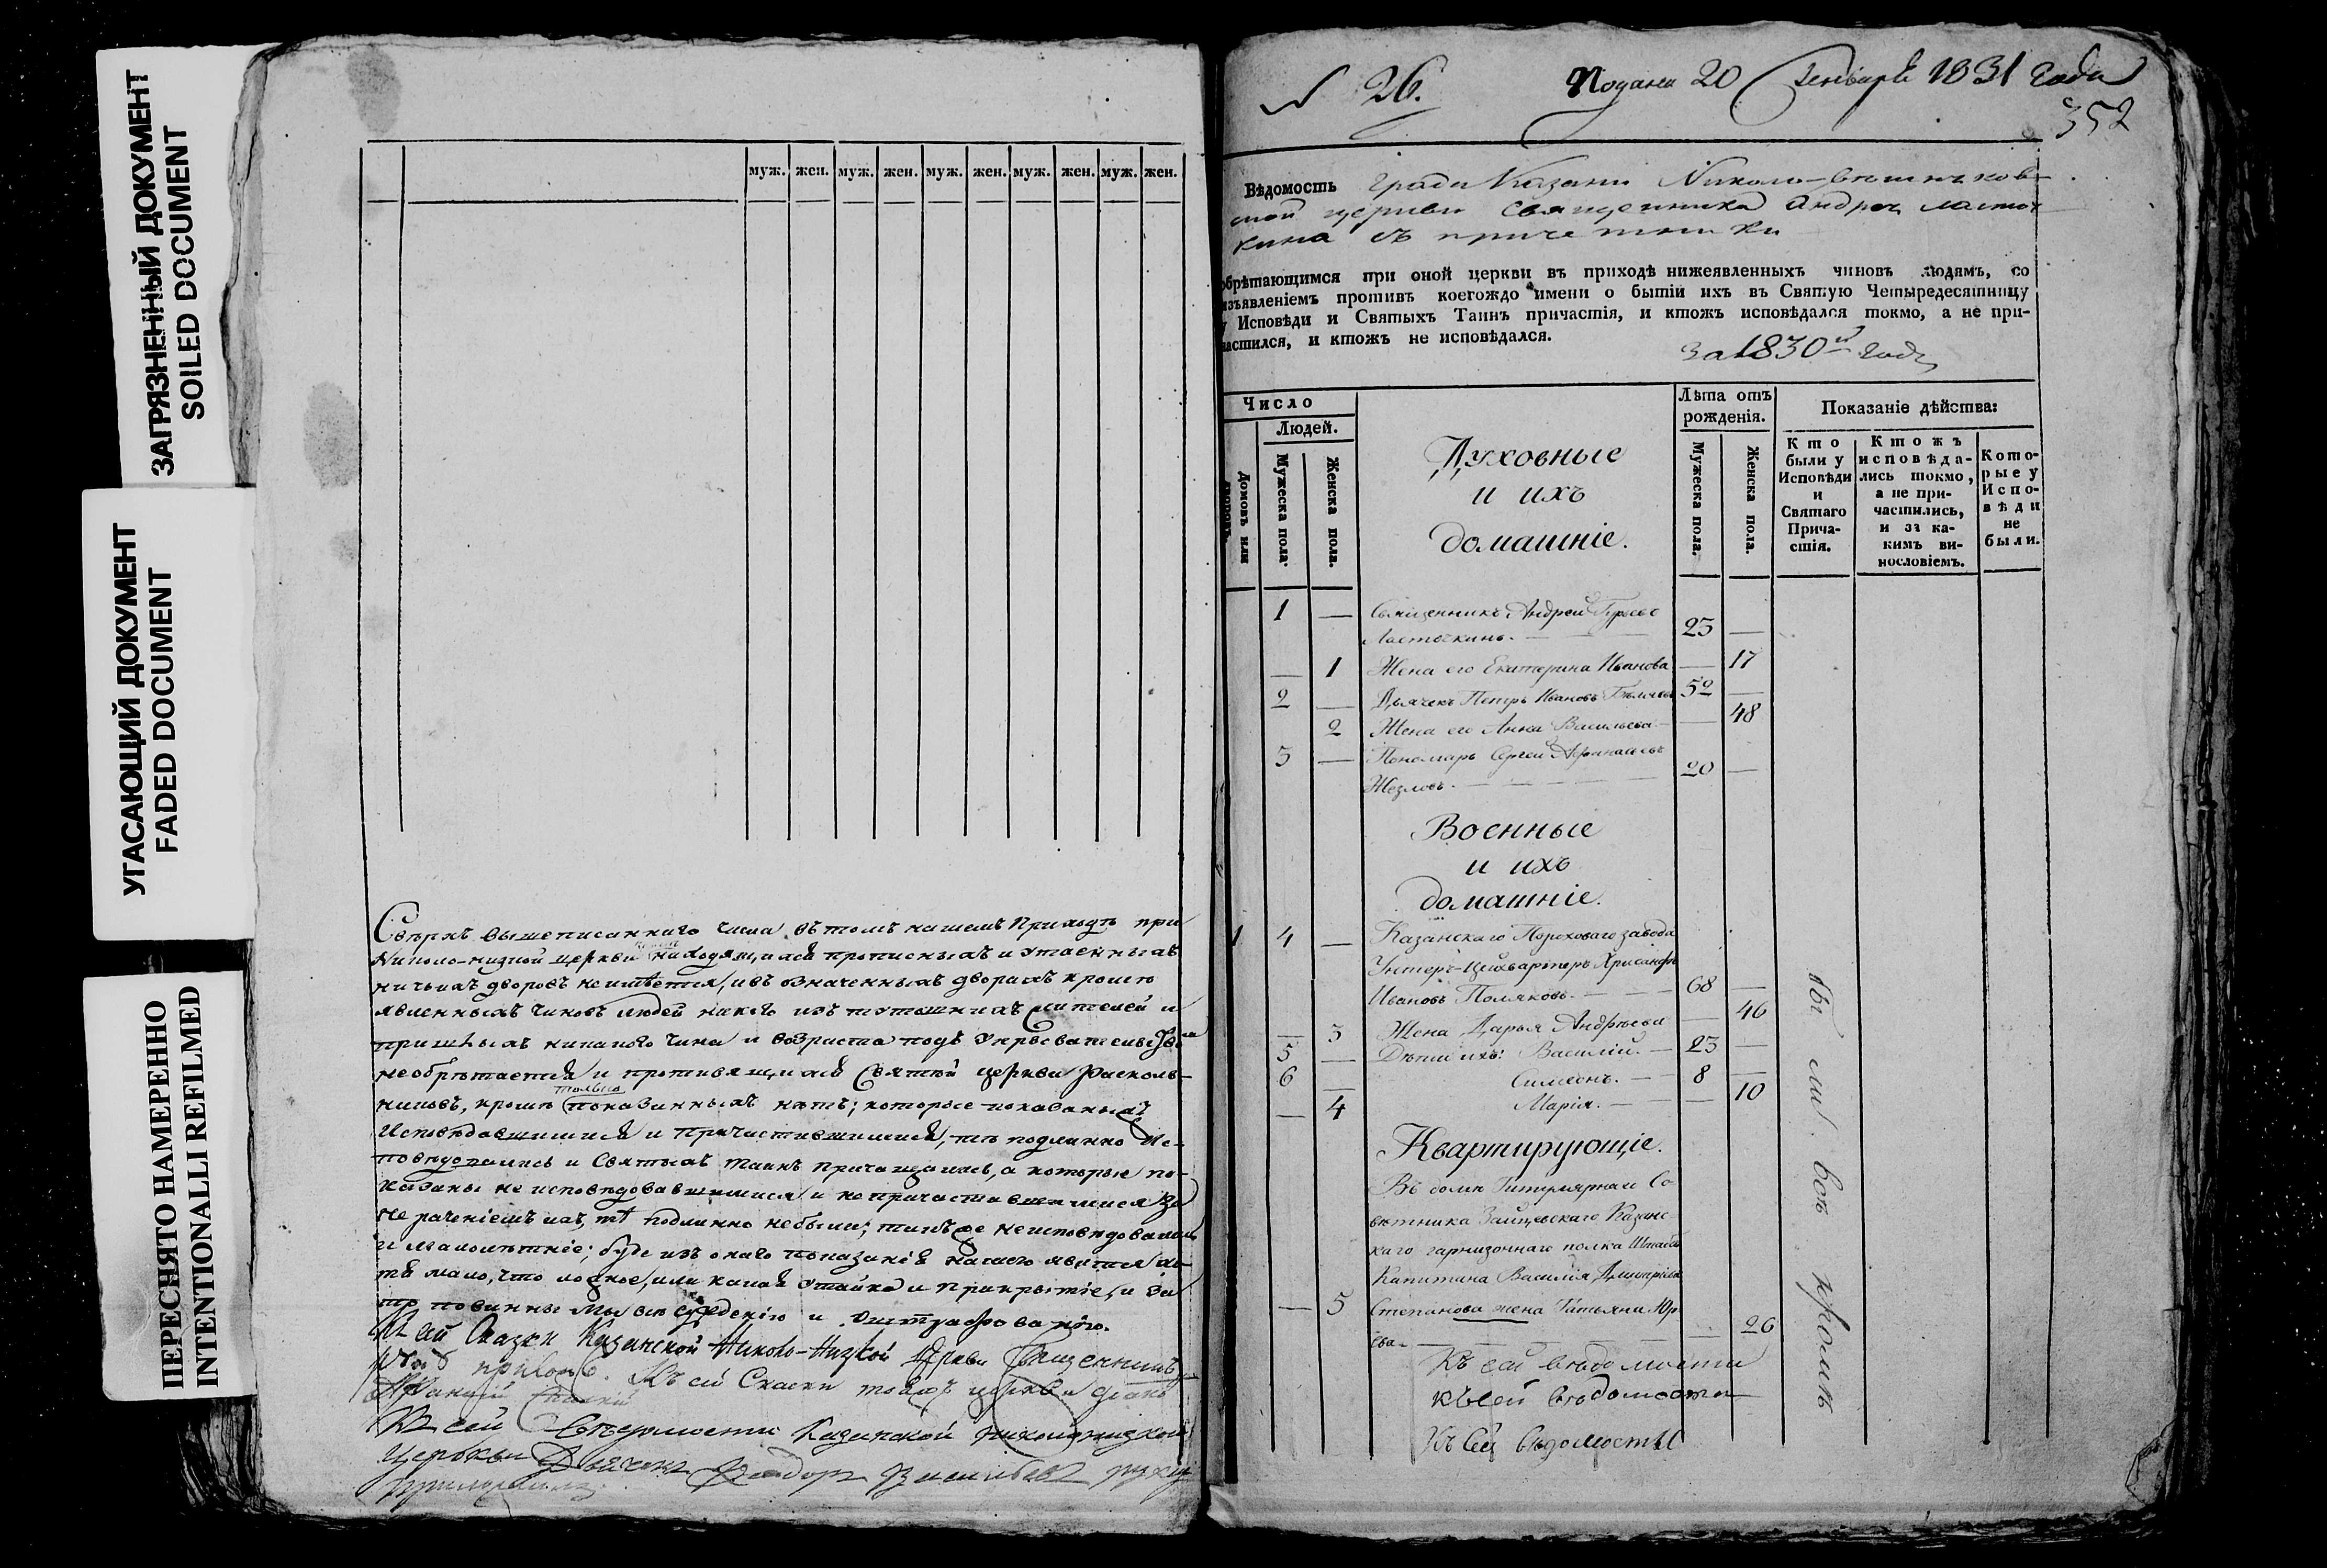 ЗАГРЯЗНЕННЫЙ ДОКУМЕНТ
SOILED DOCUMENT
УГАСАЮЩИЙ ДОКУМЕНТ
FADED DOCUMENT
ПЕРЕСНЯТО НАМЕРЕННО
INTENTIONALLI REFILMED
муж. жен. муж. жен. муж. жен. муж. жен. муж. жен.
Сверхъ вышеписаннаго числа въ томъ нашемъ Приходѣ при
Николо-низкой церкви находящихся прописныхъ и утаенныхъ
ничьихъ дворовъ неимѣется, и въ означенныхъ дворахъ кромѣ
явленныхъ чиновъ людей никого изъ тутошнихъ жителей и
пришлыхъ никакого чина и возраста подъ укрывательст
необрѣтается и противящихся Святѣй церкви Расколь-
только
никовъ, кромѣ показанныхъ нѣтъ; которые показаны
Исповѣдавшимися и причастившимися, тѣ подлинно Ис-
повѣдовались и Святыхъ таинъ причащались, а которые по-
казаны не исповѣдовавшимися и не причастившимися за
нераченіемъ ихъ, тѣ подлинно небыли; такъ же неисповѣдовались
и малолѣтніе; буде изъ онаго показанія нашего явится хо-
тя мало, что ложное, или какая утайка и прикрытіе, и за
то повинны мы суждению и оштрафованію.
Къ сей Сказки Казанской Николо-Низкой Церкви Священникъ
Къ сей Скаски тояжъ церкви
Къ сей Ведомости Казанской
церькви Дьячекъ Федоръ руку
приложилъ
N 26. Подана 20 Генваря 1831 года
352
Вѣдомость града Казани Николо-
ской церкви Священника Андрея Ласточ
кина съ причетники
обрѣтающимся при оной церкви въ приходѣ нижеявленныхъ чиновъ людямъ, со
изъявленіемъ противъ коегождо имени о бытіи ихъ въ Святую Четыредесятницу
у Исповѣди и Святыхъ Таинъ причастія, и ктожъ исповѣдался токмо, а не при-
частился, и ктожъ не исповѣдался.
за 1830й годъ
Число
Людей.
Домовъ или дворовъ.
Мужеска пола.
Женска пола.
Духовные
и ихъ
домашніе.
Лѣта отъ
рожденія.
Мужеска пола.
Женска пола.
Показаніе дѣйства:
Кто
были у
Исповѣди
и
Святаго
Прича-
стія.
Ктожъ
исповѣда-
лись токмо,
а не при-
частились,
и за ка-
кимъ ви-
нословіемъ.
Кото-
рые у
Испо-
вѣди
не
были.
1 — Священникъ Андрей Гурьевъ
Ласточкинъ. — 25 —
— 1 Жена его Екатерина Иванова — 17
2 — Дьячекъ Петръ Ивановъ 52 —
2 Жена его Анна Васильева — — 48
3 — Пономарь Сергей Афанасьевъ
Жезловъ. — 20 —
Военные
и ихъ
домашніе.
1 4 — Казанскаго Пороховаго завода
Унтеръ-Цейхвартеръ Хрисанфъ
Ивановъ Поляковъ. — 68 —
— 3 Жена Дарья Андреева — 46
5 — Дѣти ихъ: Василій. — 23 —
6 — Симеонъ. — 8 —
— 4 Марія. — — 10
Квартирующіе.
Въ домѣ Титулярнаго Со
вѣтника Зайцевскаго Казанс-
каго гарнизоннаго полка Штабсъ
Капитана Василія Дмитріева
— 5 Степанова жена Татьяна Юр
ева. — — 26
Къ сей вѣдомости
къ сей вѣдомости
Къ Сей Вѣдомости